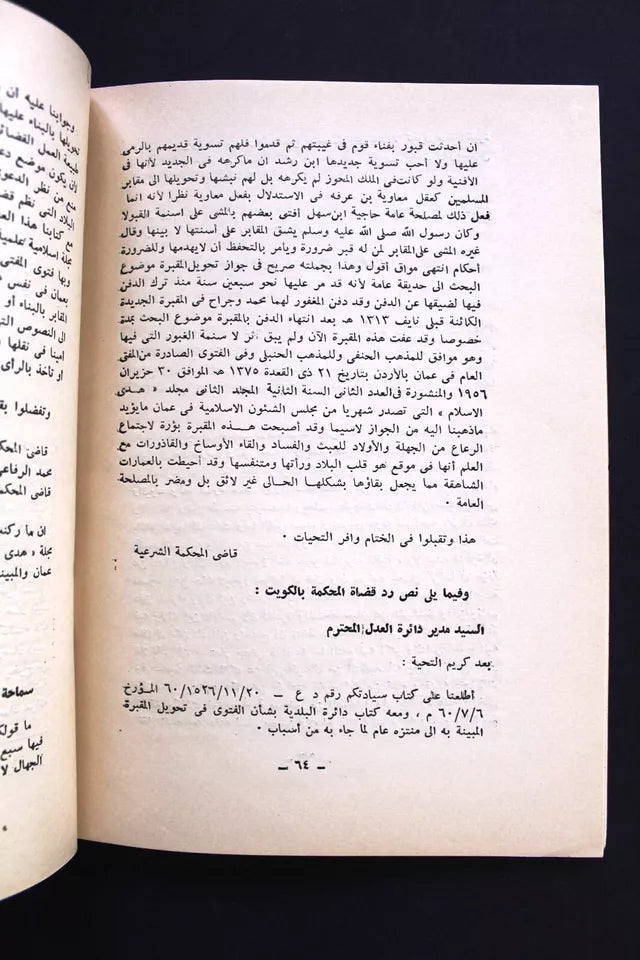 ان أحدثت قبور بفناء قوم فى غيبتهم ثم قدموا فلهم تسوية قديمهم بالرمى
عليها ولا أحب تسوية جديدها ابن رشد ان ماكرهه فى الجديد لأنها فى
الأفنية ولو كانت فى الملك المحوز لم يكرهه بل لهم نبشها وتحويلها الى مقابر
المسلمين كعقل معاوية بن عرفه فى الاستدلال بفعل معاوية نظرا لأنه انما
فعل ذلك لمصلحة عامة حاجية ابن سهل افتى بعضهم بالمشى على اسنمة القبولا
وكان رسول الله صلى الله عليه وسلم يشق المقابر على أسنتها لا بينها وقال
غيره المشى على المقابر لمن له قبر ضرورة ويأمر بالتحفظ أن لايهدمها وللضرورة
أحكام انتهى مواق أقول وهذا بجملته صريح فى جواز تحويل المقبرة موضوع
البحث الى حديقة عامة لأنه قد مر عليها نحو سبعين سنة منذ ترك الدفن
فيها لضيقها عن الدفن وقد دفن المغفور لهما محمد وجراح فى المقبرة الجديدة
الكائنة قبلى نايف ١٣١٣ هـ بعد انتهاء الدفن بالمقبرة موضوع البحث بمدة
خصوصا وقد عفت هذه المقبرة الآن ولم يبق أثر لا سنمة الغبور التى فيها
وهو موافق للمذهب الحنفى وللمذهب الحنبلى وفى الفتوى الصادرة من المفتى
العام فى عمان بالأردن بتاريخ ٢١ ذى القعدة ١٣٧٥ هـ الموافق ٣٠ حزيران
١٩٥٦ والمنشورة فى العدد الثانى السنة الثانية المجلد الثانى مجلد « هدى
الاسلام » التى تصدر شهريا من مجلس الشئون الاسلامية فى عمان مايؤيد
ماذهبنا اليه من الجواز لاسيما وقد أصبحت هذه المقبرة بؤرة لاجتماع
الرعاع من الجهلة والأولاد للعبث والفساد والقاء الأوساخ والقاذورات مع
العلم أنها فى موقع هو قلب البلاد ورآتها ومتنفسها وقد أحيطت بالعمارات
الشاهقة مما يجعل بقاؤها بشكلها الحالى غير لائق بل ومضر بالمصلحة
العامة .
هذا وتقبلوا فى الختام وافر التحيات .
قاضى المحكمة الشرعية
وفيما يلى نص رد قضاة المحكمة بالكويت :
السيد مدير دائرة العدل المحترم
بعد كريم التحية :
أطلعنا على كتاب سيادتكم رقم د ع – ٦٠/١٥٢٦/١١/٢٠ المؤرخ
٦٠/٧/٦ م ، ومعه كتاب دائرة البلدية بشأن الفتوى فى تحويل المقبرة
المبينة به الى منتزه عام لما جاء به من أسباب .
– ٦٤ –
وجوابنا عليه ان
تحويلها بالبناء عليها
طبيعة العمل القضائى
لان يكون موضع
منع من نظر الدعوى
البلاد التى نظم
مع كتابنا هذا
مجلة اسلامية علمية
وبها فتوى المفتى
بعمان فى نفس
المقابر بالبناء أو
الى النصوص
امينا فى نقلها
او تأخذ بالرأى
وتفضلوا
قاضى
محمد الرفاعى
قاضى
ان ما
مجلة « هدى
عمان
سماحة
ما
فيها سبع
الجهال لا